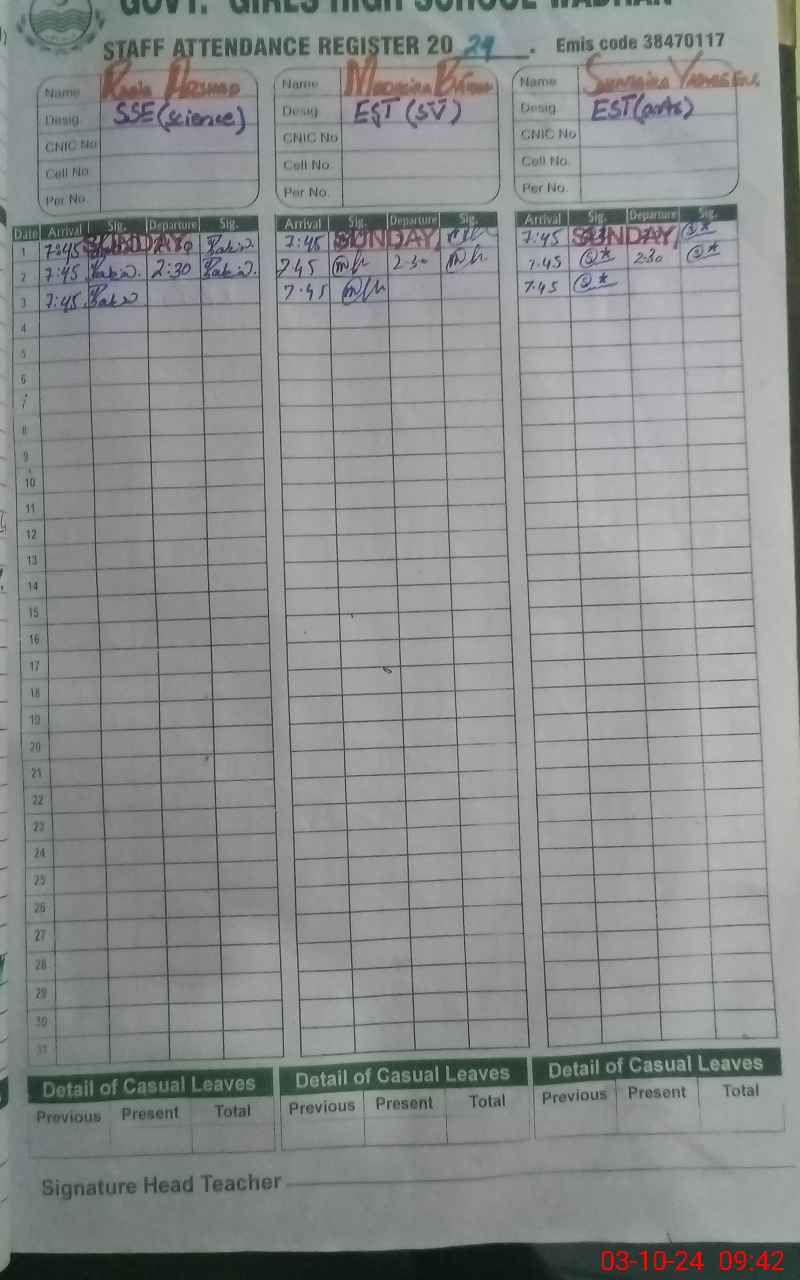 GOVT. GIRLS HIGH SCHOOL WADHAN
STAFF ATTENDANCE REGISTER 20 24 . Emis code 38470117
Name Name Name
Desig. SSE (science) Desig. EST (SV) Desig. EST (arts)
CNIC No CNIC No CNIC No
Cell No. Cell No. Cell No.
Per No. Per No. Per No.
Date Arrival Sig. Departure Sig. Arrival Sig. Departure Sig. Arrival Sig. Departure Sig.
1 7:45 SUNDAY 7:45 SUNDAY 7:45 SUNDAY
2 7:45 2:30 7.45 2.30 7.45 2.30
3 7:45 7.45 7.45
4
5
6
7
8
9
10
11
12
13
14
15
16
17
18
19
20
21
22
23
24
25
26
27
28
29
30
31
Detail of Casual Leaves Detail of Casual Leaves Detail of Casual Leaves
Previous Present Total Previous Present Total Previous Present Total
Signature Head Teacher
03-10-24 09:42